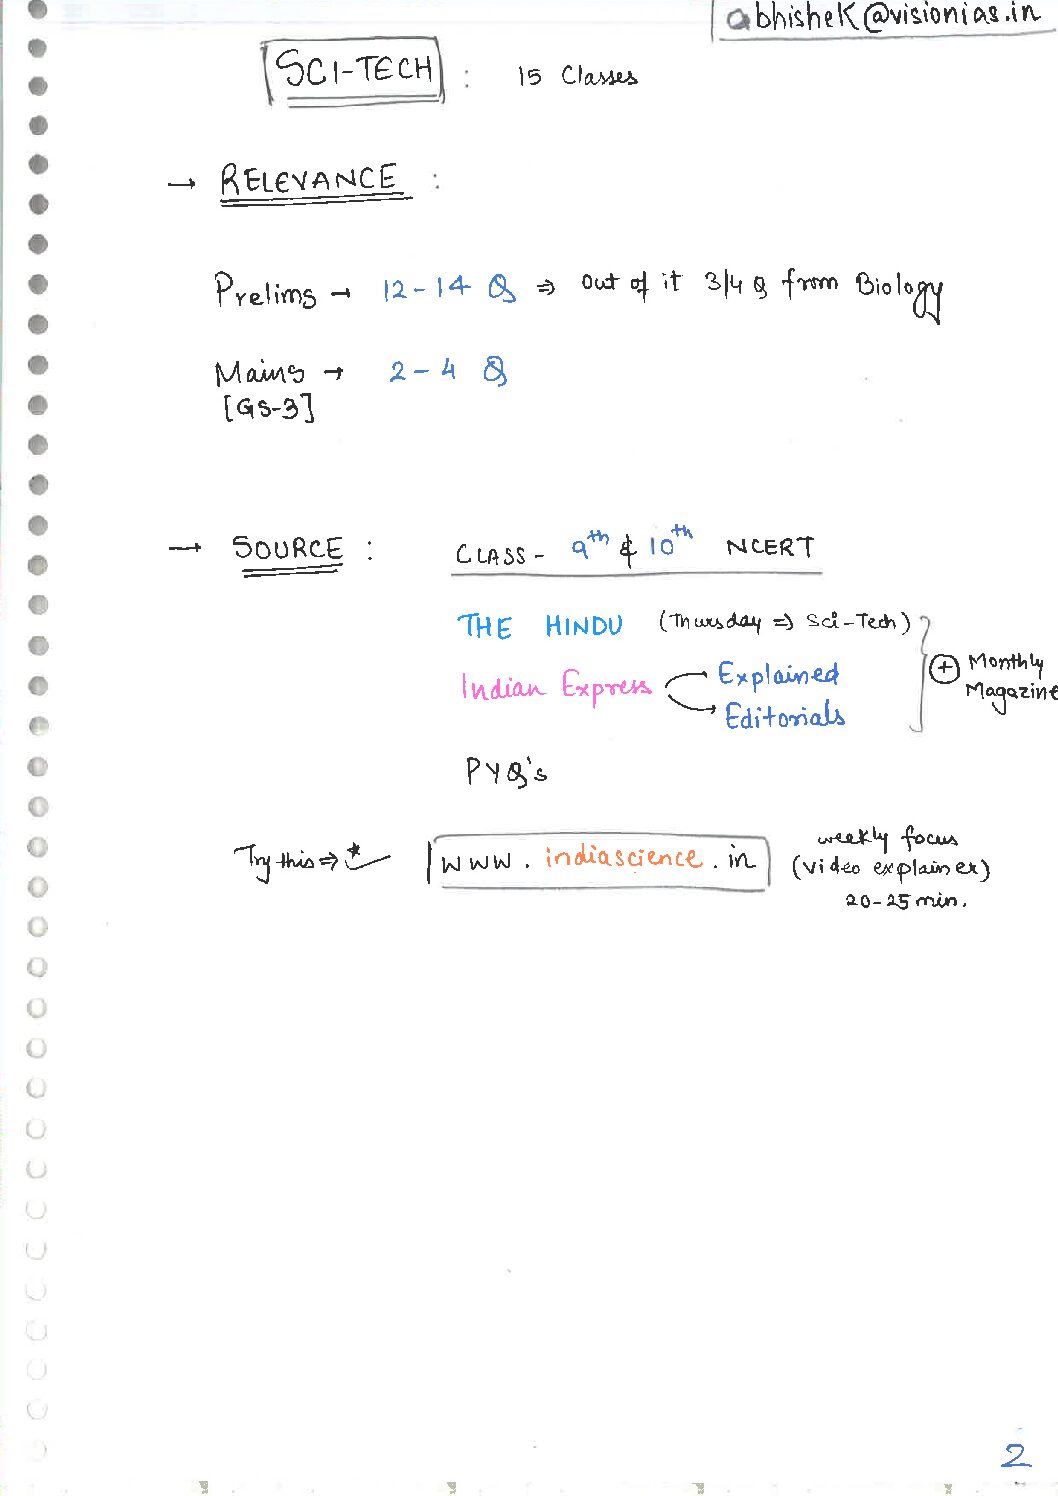 abhishek@visionias.in
SCI-TECH : 15 Classes
→ RELEVANCE :
Prelims → 12-14 Q ⇒ out of it 3/4 Q from Biology
Mains → 2-4 Q
[GS-3]
→ SOURCE : CLASS - 9th & 10th NCERT
THE HINDU (Thursday ⇒ Sci-Tech)
Indian Express → Explained
→ Editorials
⊕ Monthly
Magazine
PYQ's
Try this ⇒ ★ www.indiascience.in
weekly focus
(video explainer)
20-25 min.
2